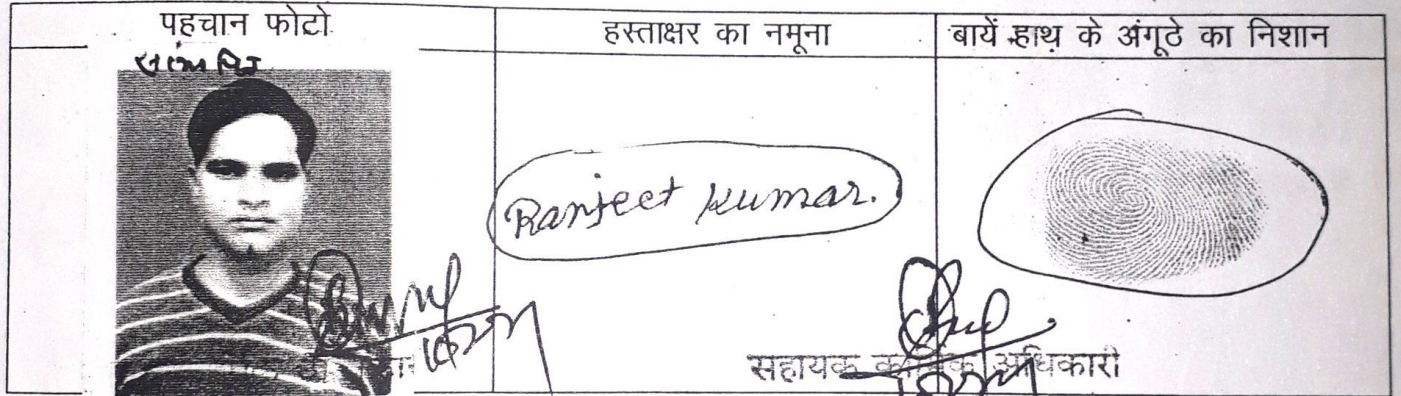 पहचान फोटो
हस्ताक्षर का नमूना
बायें हाथ के अंगूठे का निशान
सत्यापित
Ranjeet Kumar.
सहायक कार्मिक अधिकारी